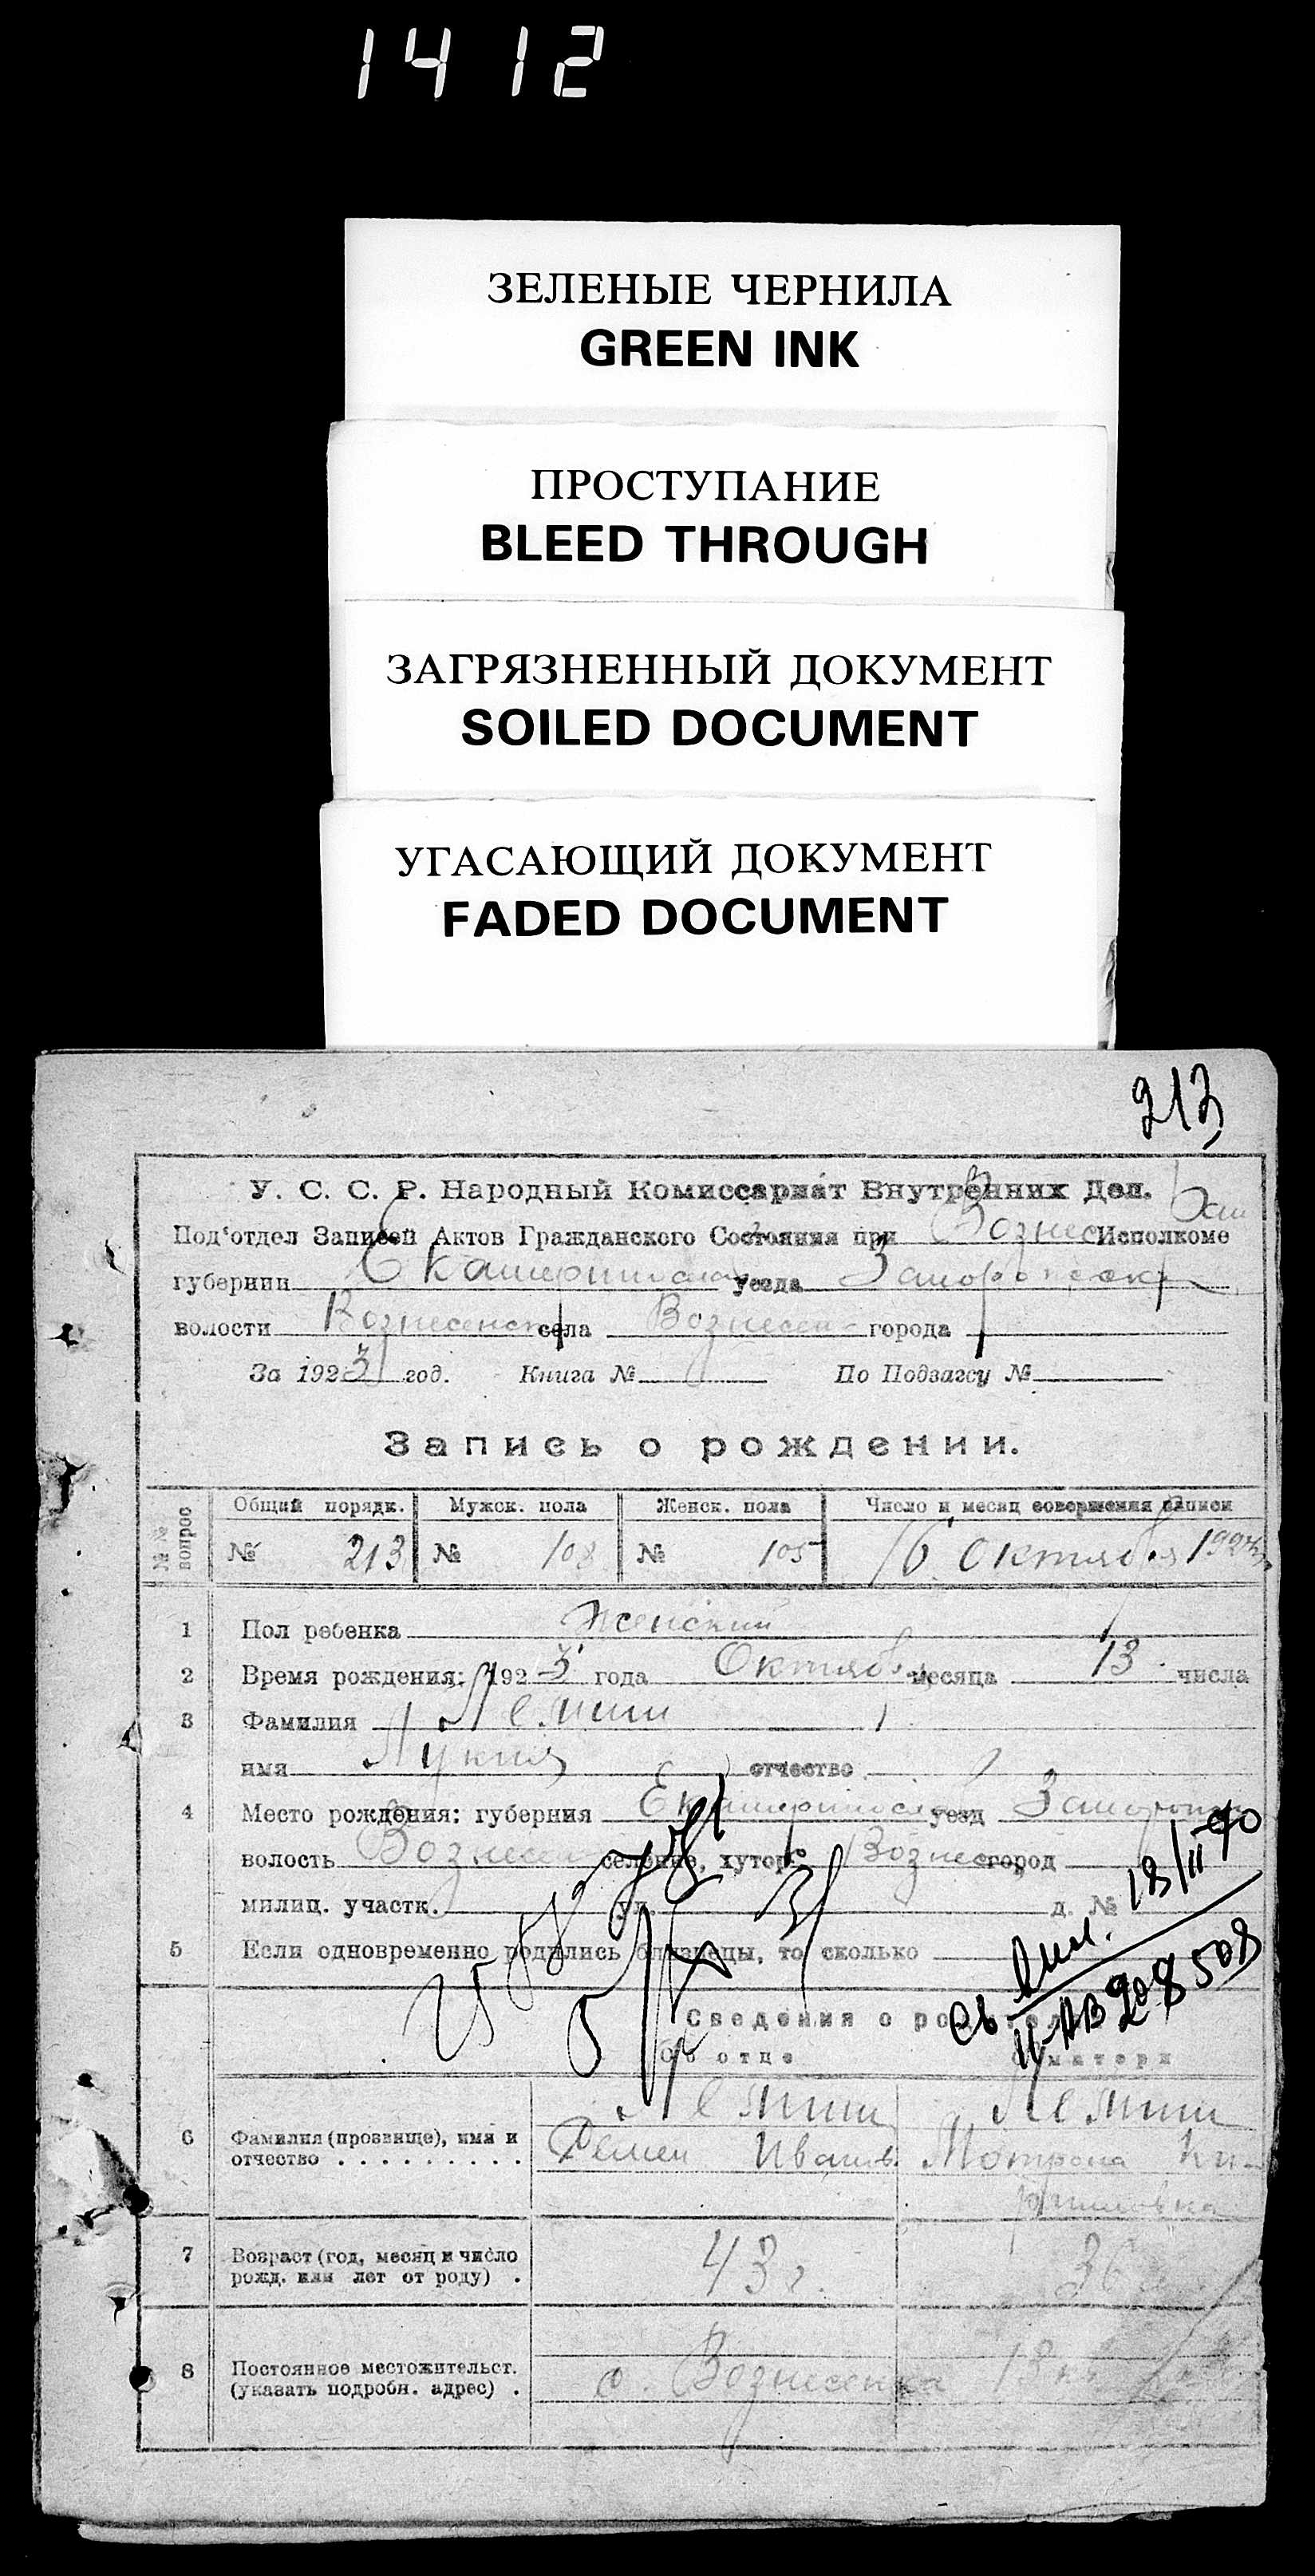 1412
ЗЕЛЕНЫЕ ЧЕРНИЛА
GREEN INK
ПРОСТУПАНИЕ
BLEED THROUGH
ЗАГРЯЗНЕННЫЙ ДОКУМЕНТ
SOILED DOCUMENT
УГАСАЮЩИЙ ДОКУМЕНТ
FADED DOCUMENT
213
У. С. С. Р. Народный Комиссариат Внутренних Дел.
Под‘отдел Записей Актов Гражданского Состояния при Вознес Исполкоме
губернии уезда
волости села Вознесен- города
За 1923 год. Книга № По Подзагсу №
Запись о рождении.
№ № вопрос
Общий порядк. Мужск. пола Женск. пола Число и месяц совершения записи
№ 213 № 108 № 105 16 Октября 1923
1 Пол ребенка Женский
2 Время рождения: 1923 года Октября месяца 13 числа
3 Фамилия Лемиш
имя Лукия отчество
4 Место рождения: губерния уезд
волость селение, хутор город
милиц. участк. ул. д. №
18/II 40
5 Если одновременно родились близнецы, то сколько
Сведения о
Об отце матери
6 Фамилия (прозвище), имя и отчество Лемиш Лемиш
Семен Иванов. Мотрона Ки-
рилловна
7 Возраст (год, месяц и число рожд. или лет от роду) 43 г. 36
8 Постоянное местожительст. (указать подробн. адрес) с. Вознесенка